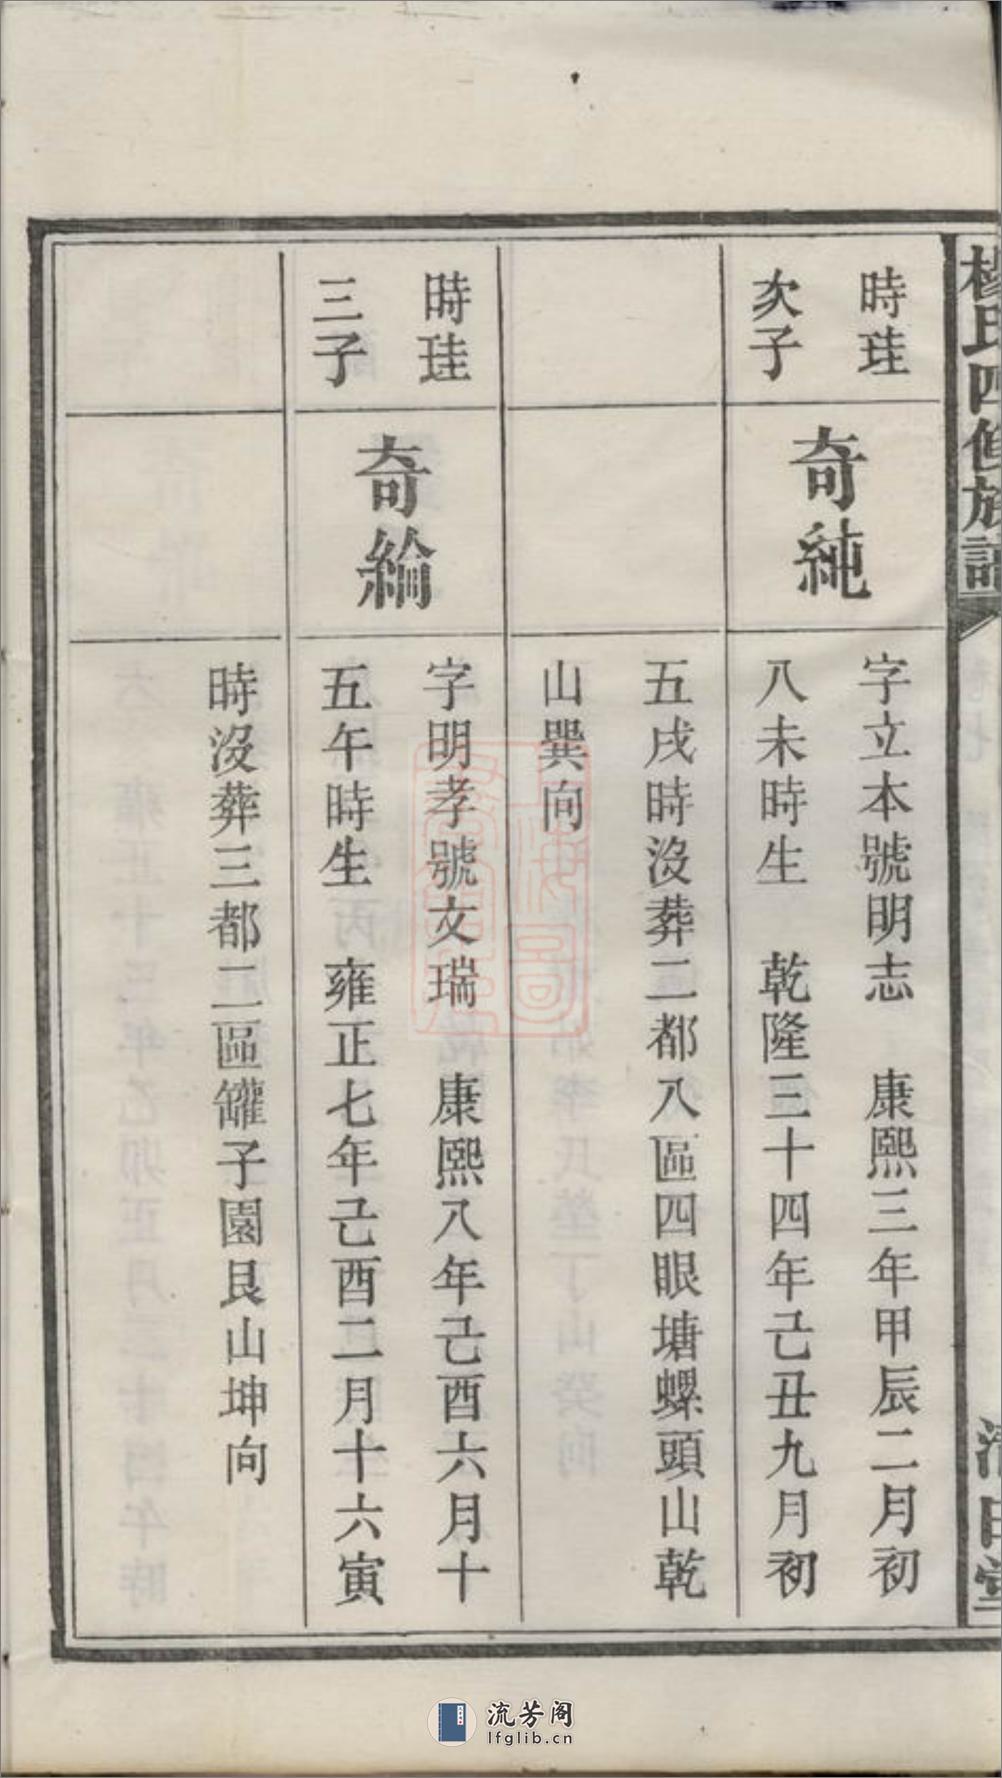 楊氏四修族譜
清白堂
時珪
次子
奇純
字立本號明志　康熙三年甲辰二月初
八未時生　乾隆三十四年己丑九月初
五戌時沒葬二都八區四眼塘螺頭山乾
山巽向
時珪
三子
奇綸
字明孝號文瑞　康熙八年己酉六月十
五午時生　雍正七年己酉二月十六寅
時沒葬三都二區罐子園艮山坤向
流芳阁
lfglib.cn